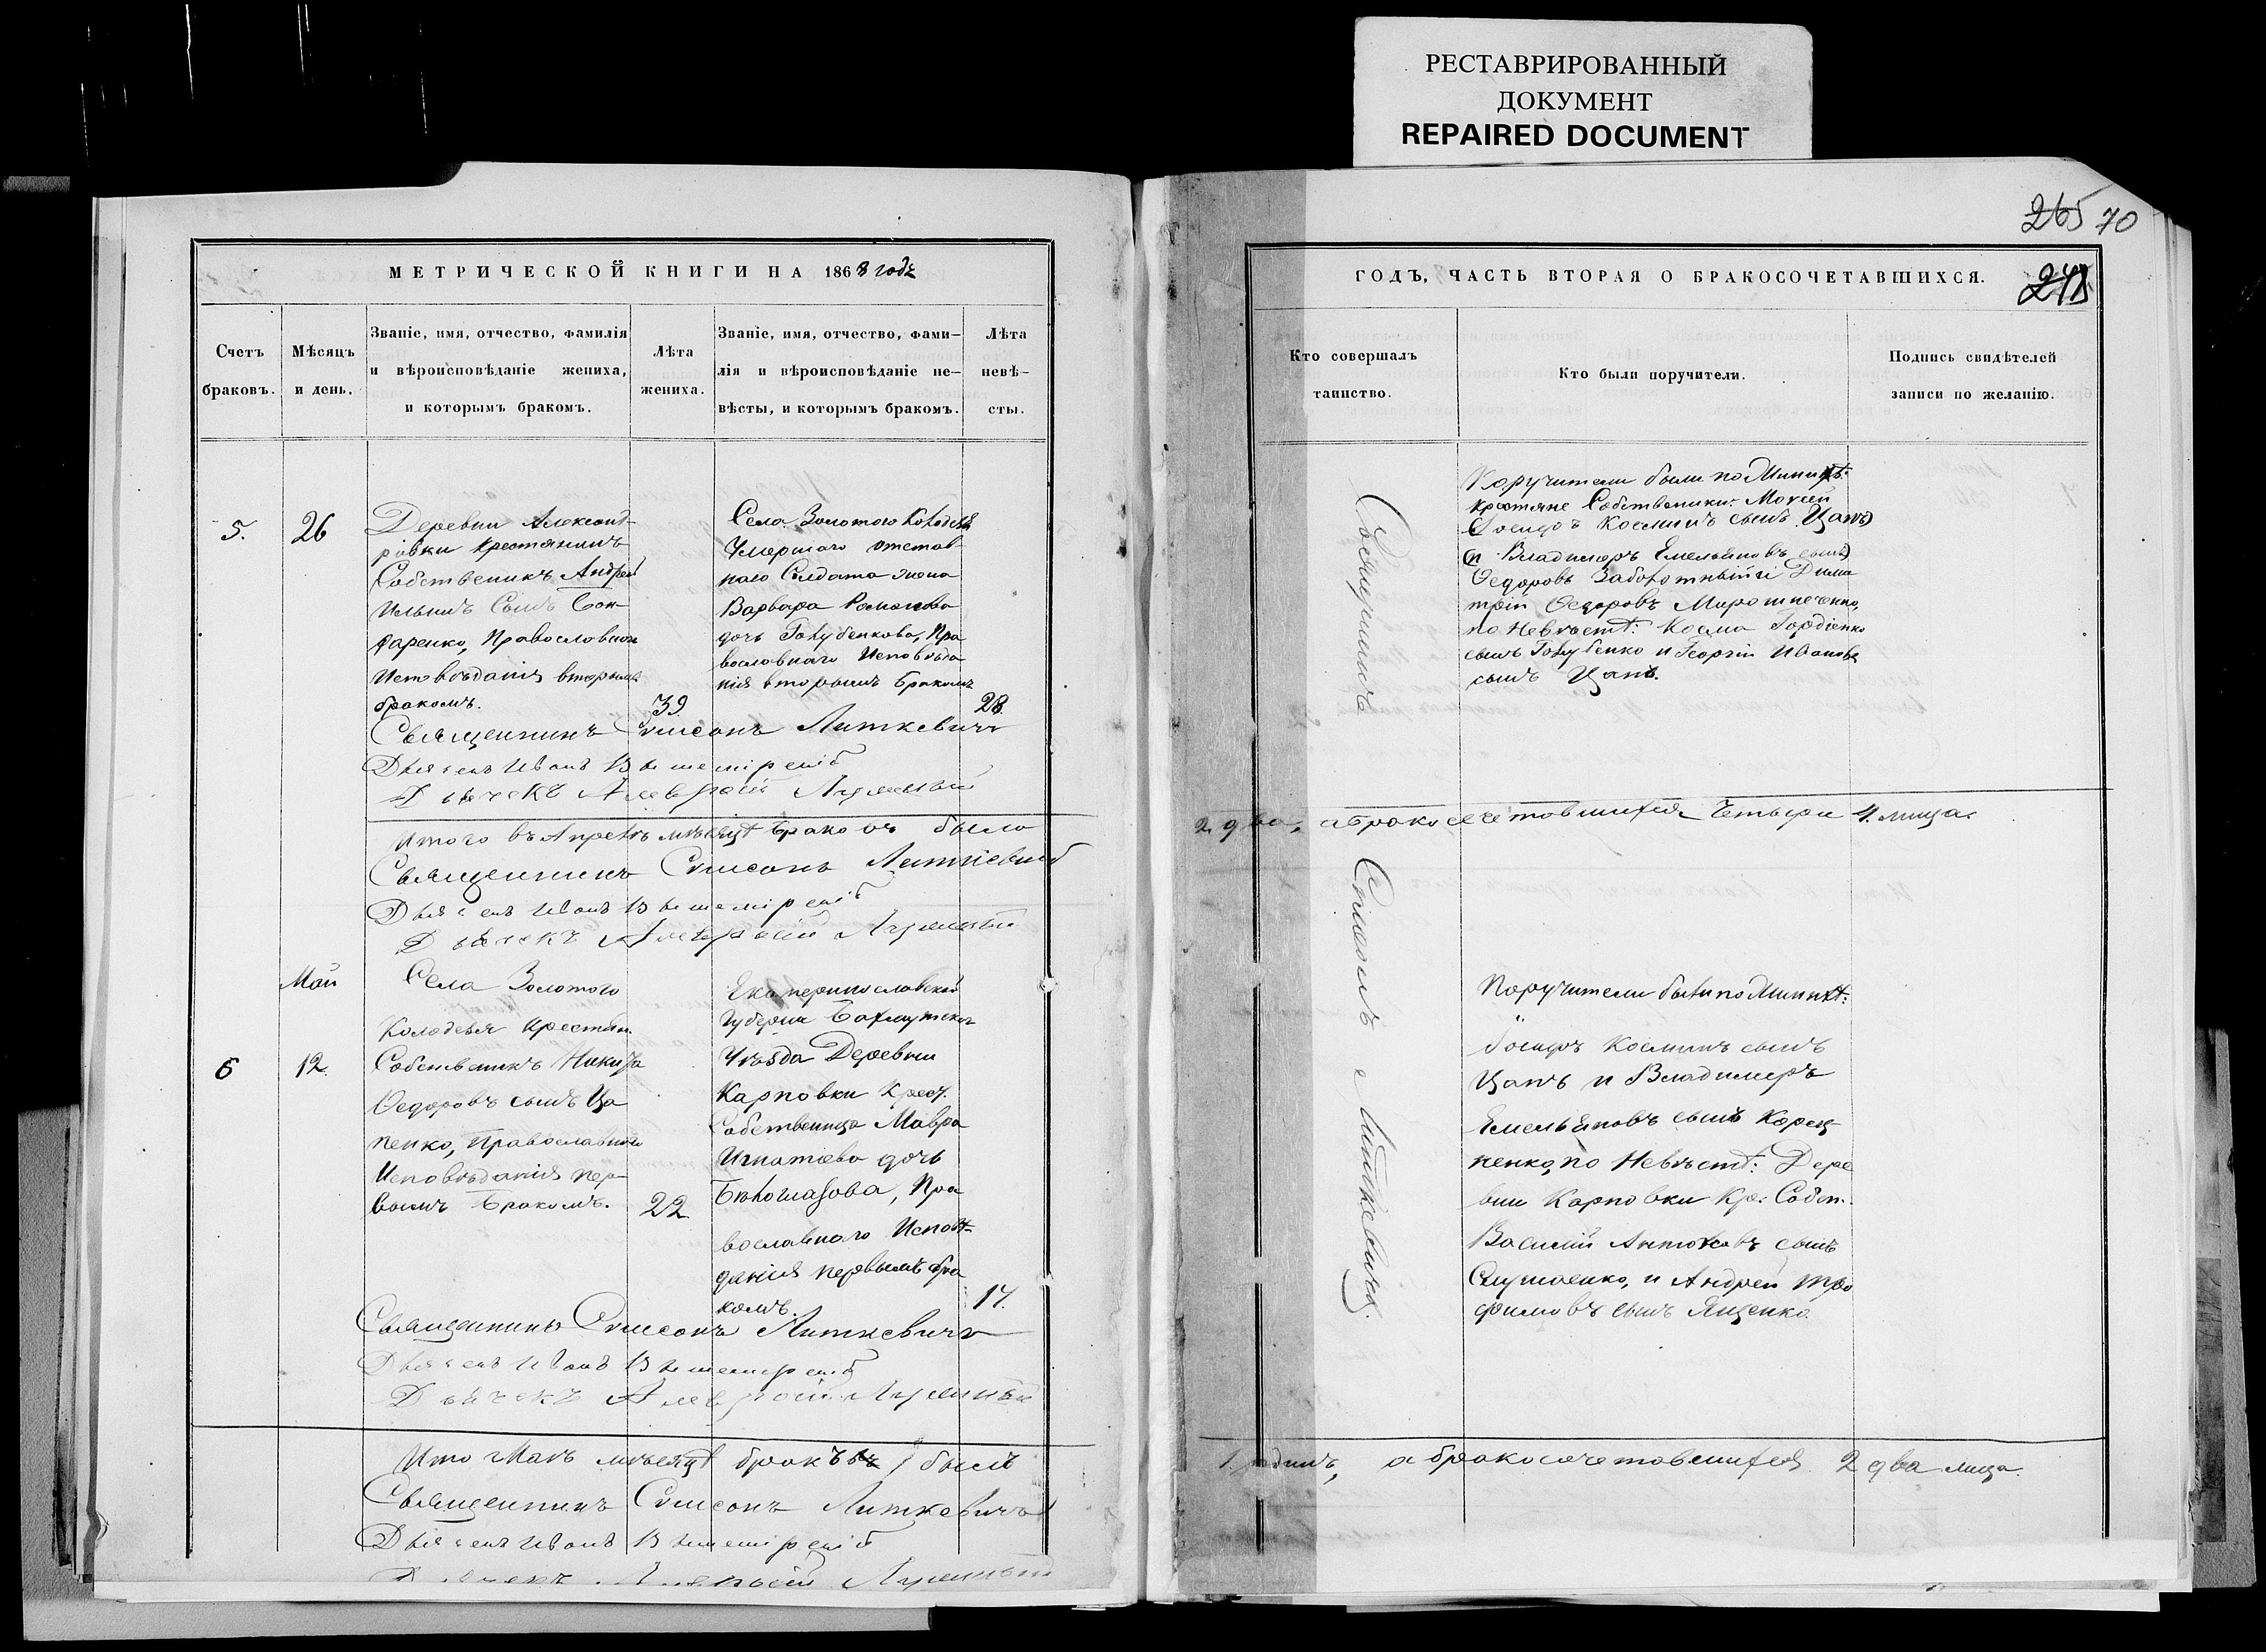 РЕСТАВРИРОВАННЫЙ
ДОКУМЕНТ
REPAIRED DOCUMENT
265 70
МЕТРИЧЕСКОЙ КНИГИ НА 1868 годъ
Счетъ
браковъ.
Мѣсяцъ
и день.
Званіе, имя, отчество, фамилія
и вѣроисповѣданіе жениха,
и которымъ бракомъ.
Лѣта
жениха.
Званіе, имя, отчество, фами–
лія и вѣроисповѣданіе не–
вѣсты, и которымъ бракомъ.
Лѣта
невѣ–
сты.
5.
26
Деревни Александ-
ровки Крестянинъ
Собственикъ Андрей
Ильинъ Сынъ Бон-
даренко, Православнаго
Исповѣданія вторымъ
бракомъ.
39
Села Золотого Колодезя
Умершаго отстав
наго Солдата жена
Варвара Романова
дочь Голубенкова, Пра
вославнаго Исповѣда
нія вторымъ бракомъ
28.
Священникъ Симеонъ Литкевичъ
Дьячекъ
Итого въ Апрелѣ мѣсяцѣ браковъ было
Священникъ Симеонъ Литкевичъ
Дьячекъ
Май
6
12
Села Золотого
Колодезя Крестян.
Собственикъ Никита
Ѳедоровъ сынъ Ца
пенко, Православнаго
Исповѣданія пер-
вымъ Бракомъ.
22
Екатеринославской
Губерніи Бахмутскаго
Уѣзда Деревни
Карповки Крест.
Собственица Мавра
Игнатова дочь
Бѣлоглазова, Пра
вославнаго Исповѣ-
данія первымъ бра
комъ.
17.
Священникъ Симеонъ Литкевичъ
Дьячекъ
мѣсяцѣ бракъ былъ
Священникъ Симеонъ Литкевичъ
ГОДЪ, ЧАСТЬ ВТОРАЯ О БРАКОСОЧЕТАВШИХСЯ.
Кто совершалъ
таинство.
Кто были поручители.
Подпись свидѣтелей
записи по желанію.
Священникъ Симеонъ Литкевичъ.
Поручители были по Женихѣ:
крестяне Собственики: Моисей
Іосифъ Косминъ сынъ Цапъ
и Владимеръ Емельяновъ сынъ
Ѳедоровъ Заболотный и Дими
трій Ѳедоровъ Мирошнеченко,
по Невѣстѣ: Косма Гордіенко
сынъ Голубенко и Георгій Иванова
сынъ Цапъ.
2 два, а бракосочетовшихся Четыри 4. лица.
Поручители были по Женихѣ:
Іосифъ Косминъ сынъ
Цапъ и Владимеръ
Емельяновъ сынъ
ненко, по Невѣстѣ: Дере
вни Карповки Кр: Собст.
Василий Антоновъ сынъ
и Андрей Тро
фимовъ сынъ Яценко.
1. одинъ, а бракосочетовшихся 2 два лица.